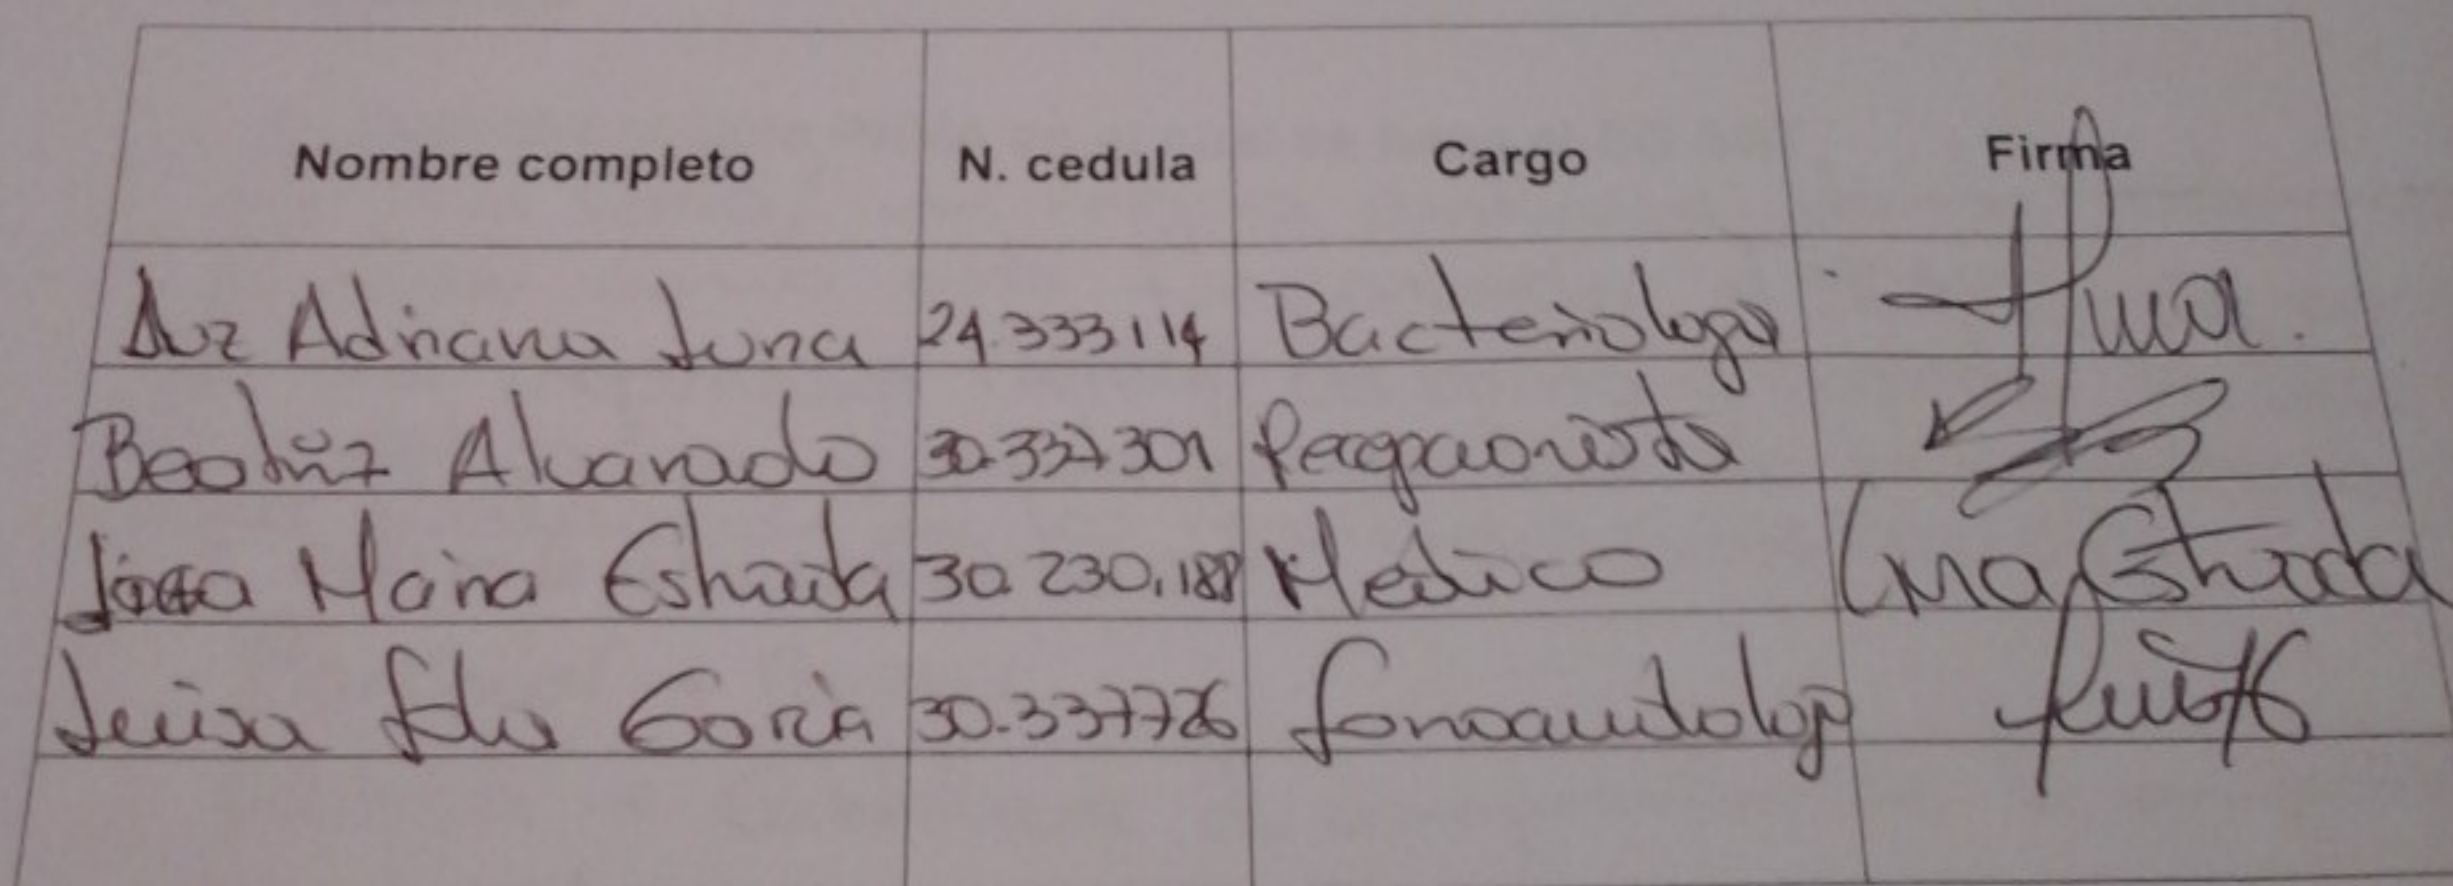 Nombre completo N. cedula Cargo Firma
Luz Adriana Luna 24.333114 Bacteriologa
Beatriz Alvarado 30.337301 Recepcionista
Maria Estrada 30.230.188 Medico Lina Estrada
Luisa Fda Garcia 30.337726 fonoaudiolog